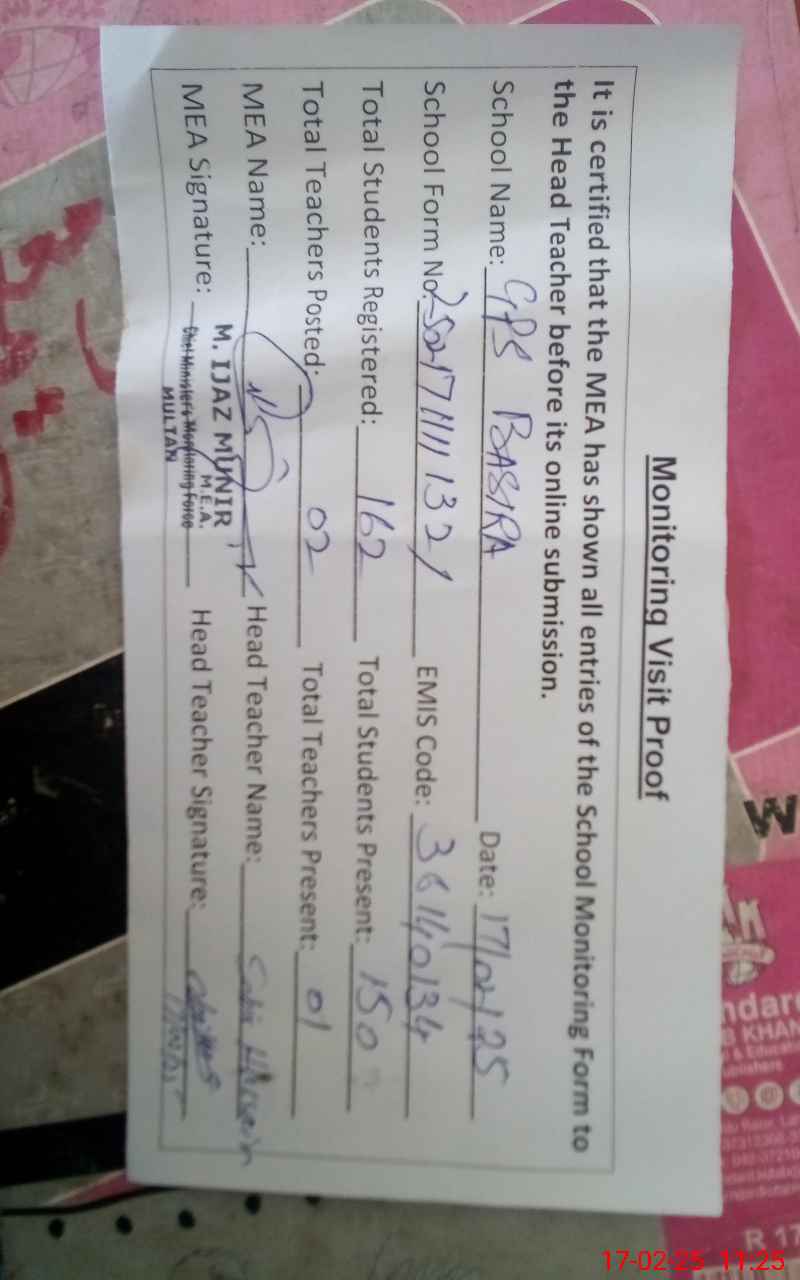 Monitoring Visit Proof
It is certified that the MEA has shown all entries of the School Monitoring Form to
the Head Teacher before its online submission.
School Name: GPS BASIRA Date: 17/02/25
School Form No: EMIS Code: 36140134
Total Students Registered: 162 Total Students Present: 150
Total Teachers Posted: 02 Total Teachers Present: 01
MEA Name: Head Teacher Name:
MEA Signature: Head Teacher Signature:
M. IJAZ MUNIR
M.E.A.
Chief Minister's Monitoring Force
MULTAN
W
KHAN
R 17
17-02-25 11:25